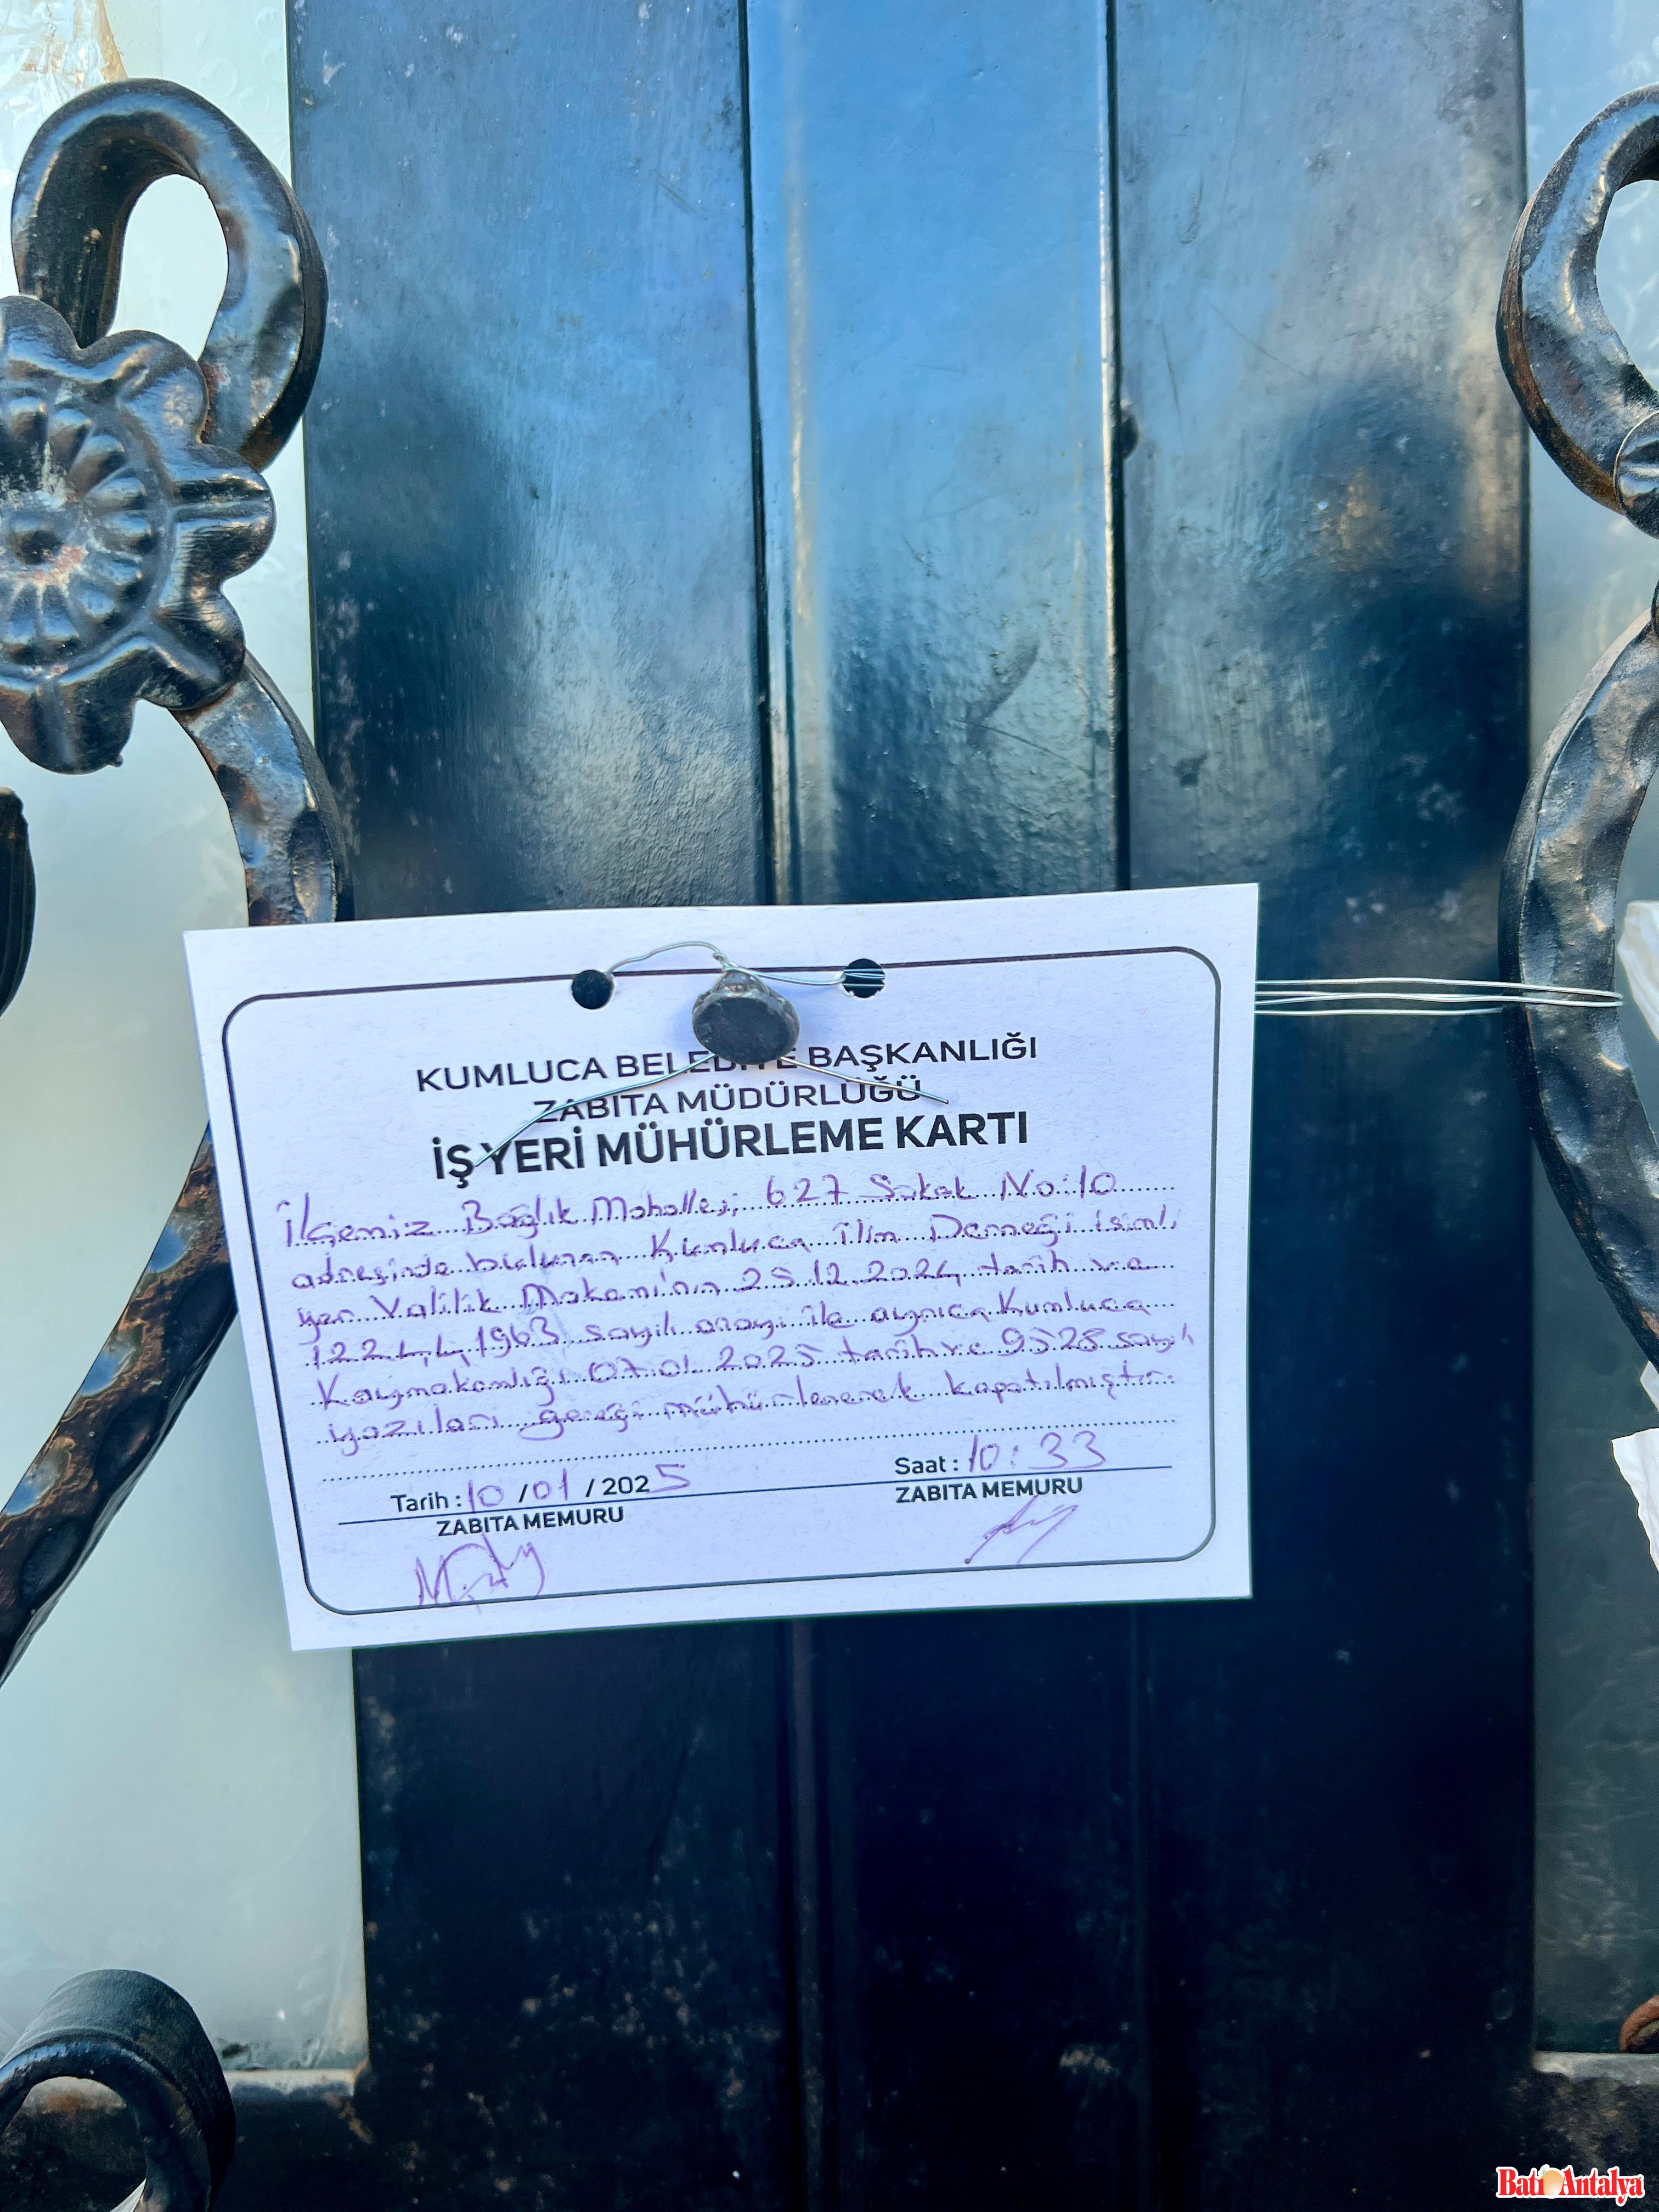 KUMLUCA BELEDİYE BAŞKANLIĞI
ZABITA MÜDÜRLÜĞÜ
İŞ YERİ MÜHÜRLEME KARTI
İlçemiz Bağlık Mahallesi 627 Sokak No:10
adresinde bulunan Kumluca İlim Derneği isimli
yer Valilik Makamı'nın 25.12.2024 tarih ve
sayılı onayı ile ayrıca Kumluca
Kaymakamlığı 07.01.2025 tarih ve 9528 sayılı
yazıları gereği mühürlenerek kapatılmıştır.
Tarih : 10 / 01 / 2025 Saat : 10:33
ZABITA MEMURU ZABITA MEMURU
Batı Antalya